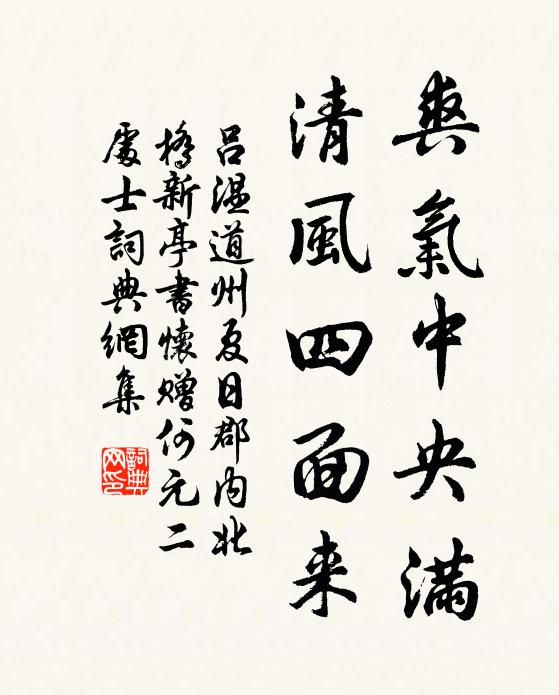 爽氣中央滿
清風四面来
呂温道州夏日郡内北
橋新亭書懷贈何元二
處士詞典網集
詞典网印